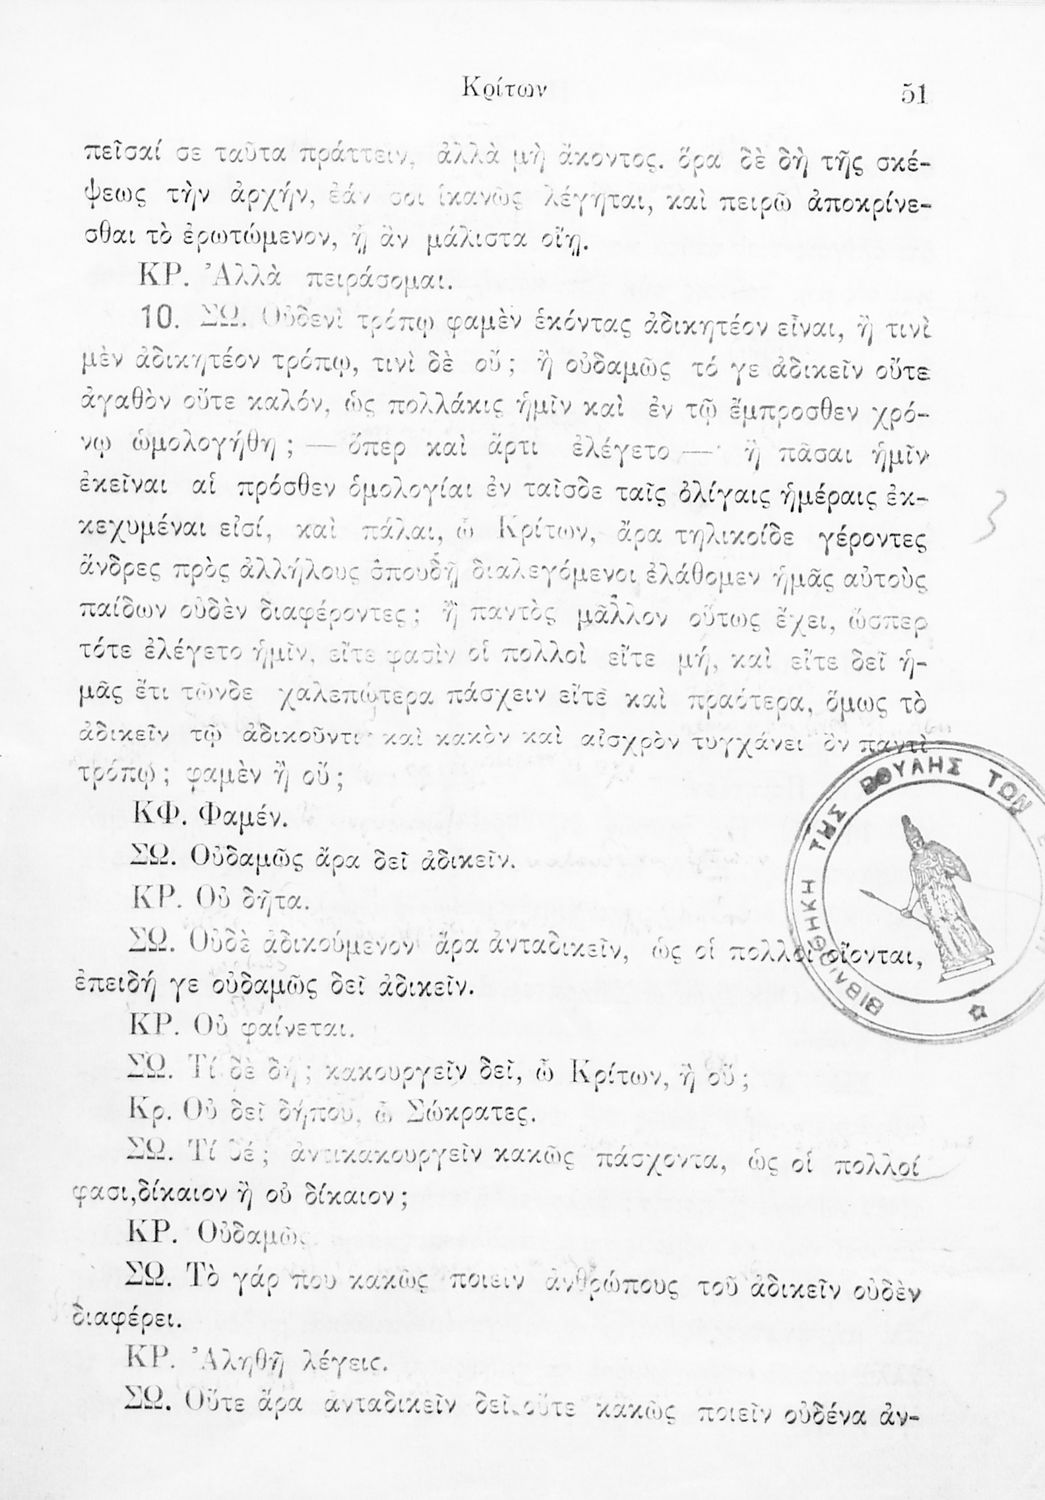 Κρίτων 51
πεῖσαί σε ταῦτα πράττειν, ἀλλὰ μὴ ἄκοντος. ὅρα δὲ δὴ τῆς σκέ-
ψεως τὴν ἀρχήν, ἐάν σοι ἱκανῶς λέγηται, καὶ πειρῶ ἀποκρίνε-
σθαι τὸ ἐρωτώμενον, ᾗ ἂν μάλιστα οἴῃ.
ΚΡ. Ἀλλὰ πειράσομαι.
10. ΣΩ. Οὐδενὶ τρόπῳ φαμὲν ἑκόντας ἀδικητέον εἶναι, ἢ τινὶ
μὲν ἀδικητέον τρόπῳ, τινὶ δὲ οὔ; ἢ οὐδαμῶς τό γε ἀδικεῖν οὔτε
ἀγαθὸν οὔτε καλόν, ὡς πολλάκις ἡμῖν καὶ ἐν τῷ ἔμπροσθεν χρό-
νῳ ὡμολογήθη; — ὅπερ καὶ ἄρτι ἐλέγετο — ἢ πᾶσαι ἡμῖν
ἐκεῖναι αἱ πρόσθεν ὁμολογίαι ἐν ταῖσδε ταῖς ὀλίγαις ἡμέραις ἐκ-
κεχυμέναι εἰσί, καὶ πάλαι, ὦ Κρίτων, ἄρα τηλικοίδε γέροντες
ἄνδρες πρὸς ἀλλήλους σπουδῇ διαλεγόμενοι ἐλάθομεν ἡμᾶς αὐτοὺς
παίδων οὐδὲν διαφέροντες; ἢ παντὸς μᾶλλον οὕτως ἔχει, ὥσπερ
τότε ἐλέγετο ἡμῖν, εἴτε φασὶν οἱ πολλοὶ εἴτε μή, καὶ εἴτε δεῖ ἡ-
μᾶς ἔτι τῶνδε χαλεπώτερα πάσχειν εἴτε καὶ πραότερα, ὅμως τὸ
ἀδικεῖν τῷ ἀδικοῦντι καὶ κακὸν καὶ αἰσχρὸν τυγχάνει ὂν παντὶ
τρόπῳ; φαμὲν ἢ οὔ;
ΚΦ. Φαμέν.
ΣΩ. Οὐδαμῶς ἄρα δεῖ ἀδικεῖν.
ΚΡ. Οὐ δῆτα.
ΣΩ. Οὐδὲ ἀδικούμενον ἄρα ἀνταδικεῖν, ὡς οἱ πολλοὶ οἴονται,
ἐπειδή γε οὐδαμῶς δεῖ ἀδικεῖν.
ΚΡ. Οὐ φαίνεται.
ΣΩ. Τί δὲ δή; κακουργεῖν δεῖ, ὦ Κρίτων, ἢ οὔ;
Κρ. Οὐ δεῖ δήπου, ὦ Σώκρατες.
ΣΩ. Τί δέ; ἀντικακουργεῖν κακῶς πάσχοντα, ὡς οἱ πολλοί
φασι,δίκαιον ἢ οὐ δίκαιον;
ΚΡ. Οὐδαμῶς
ΣΩ. Τὸ γάρ που κακῶς ποιειν ἀνθρώπους τοῦ ἀδικεῖν οὐδὲν
διαφέρει.
ΚΡ. Ἀληθῆ λέγεις.
ΣΩ. Οὔτε ἄρα ἀνταδικεῖν δεῖ οὔτε κακῶς ποιεῖν οὐδένα ἀν-
ΒΙΒΛΙΟΘΗΚΗ ΤΗΣ ΒΟΥΛΗΣ ΤΩΝ